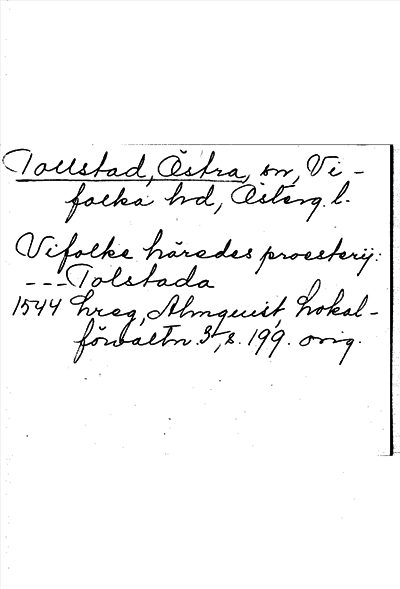 Tollstad, Östra, sn, Vi-
folka hd, Österg. l.
Vifolke häredes proesterij:
--- Tolstada
1544 hreg, Almquist, Lokal-
förvaltn. 3, s. 199. orig.